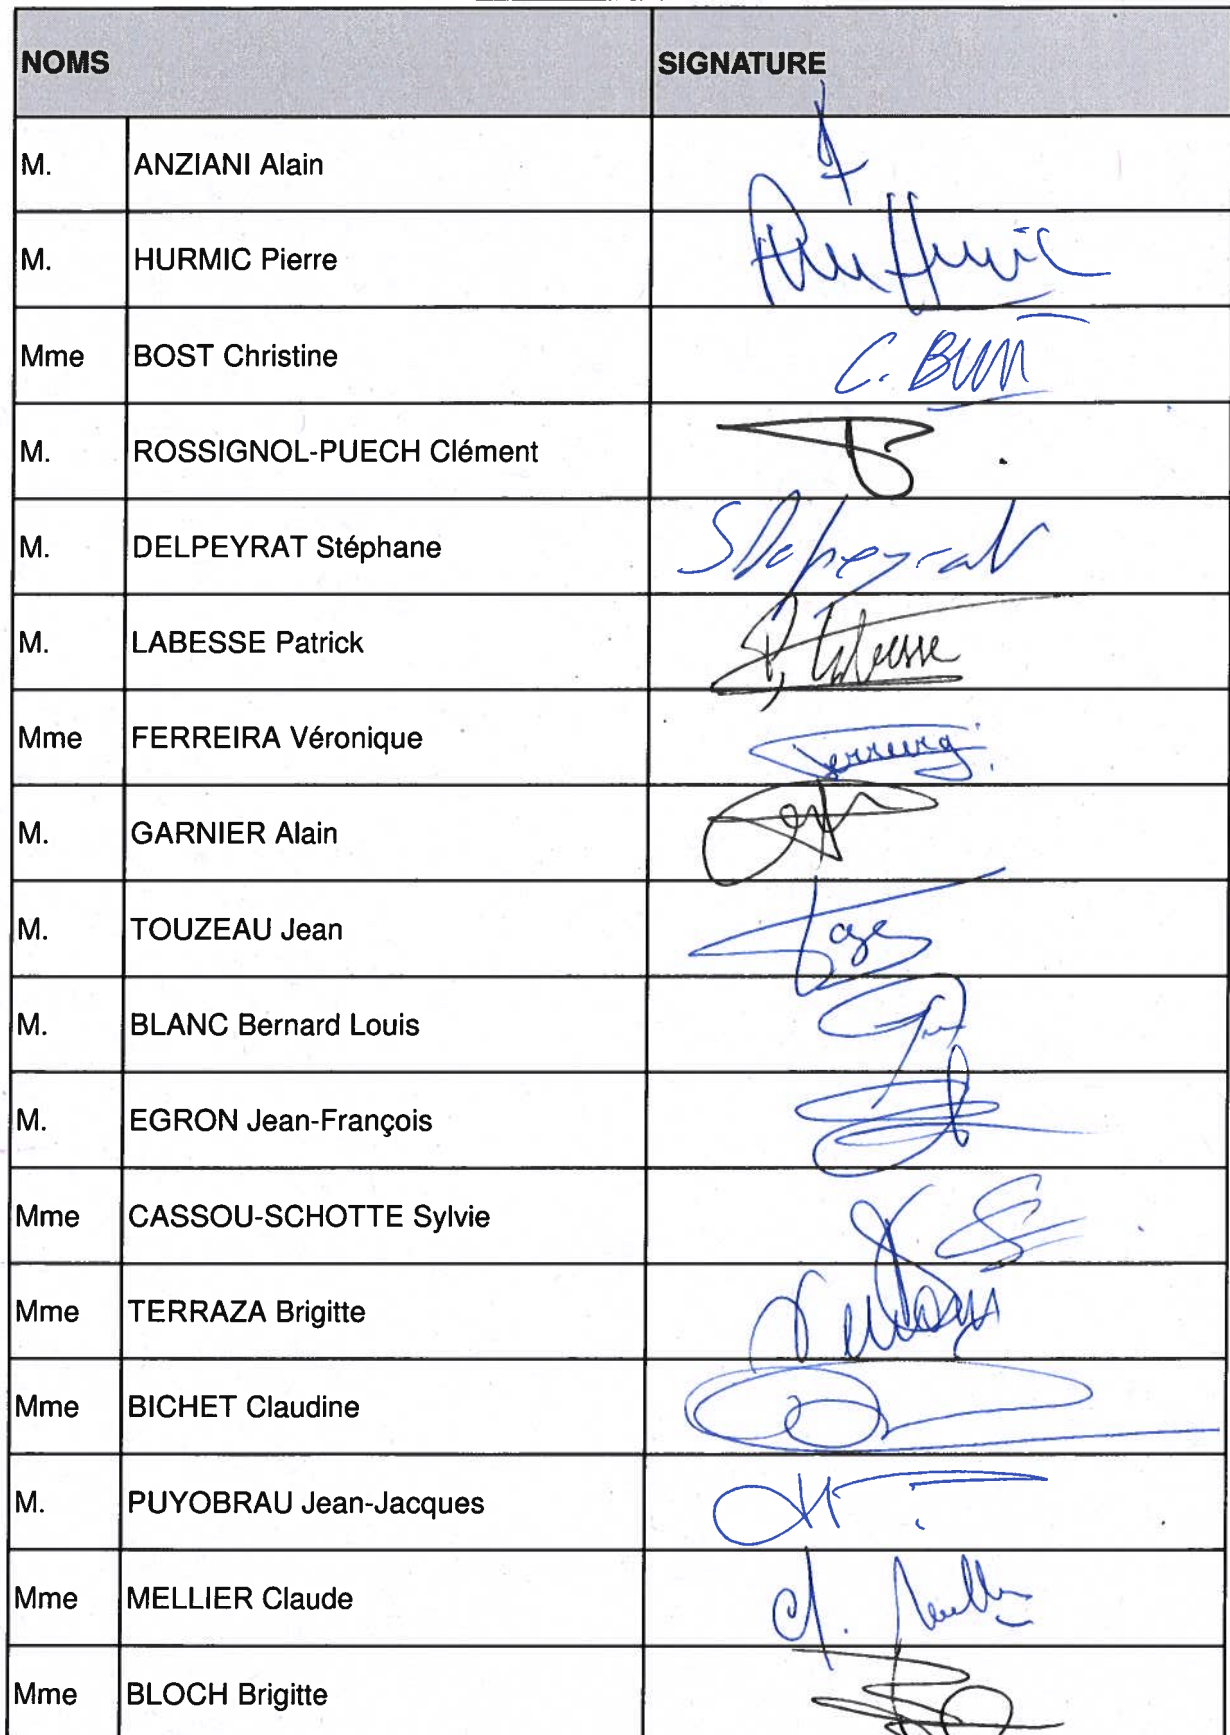 NOMS SIGNATURE
M. ANZIANI Alain
M. HURMIC Pierre
Mme BOST Christine C. B
M. ROSSIGNOL-PUECH Clément
M. DELPEYRAT Stéphane SDelpeyrat
M. LABESSE Patrick P. Labesse
Mme FERREIRA Véronique Ferreira
M. GARNIER Alain
M. TOUZEAU Jean
M. BLANC Bernard Louis
M. EGRON Jean-François
Mme CASSOU-SCHOTTE Sylvie
Mme TERRAZA Brigitte
Mme BICHET Claudine
M. PUYOBRAU Jean-Jacques
Mme MELLIER Claude
Mme BLOCH Brigitte